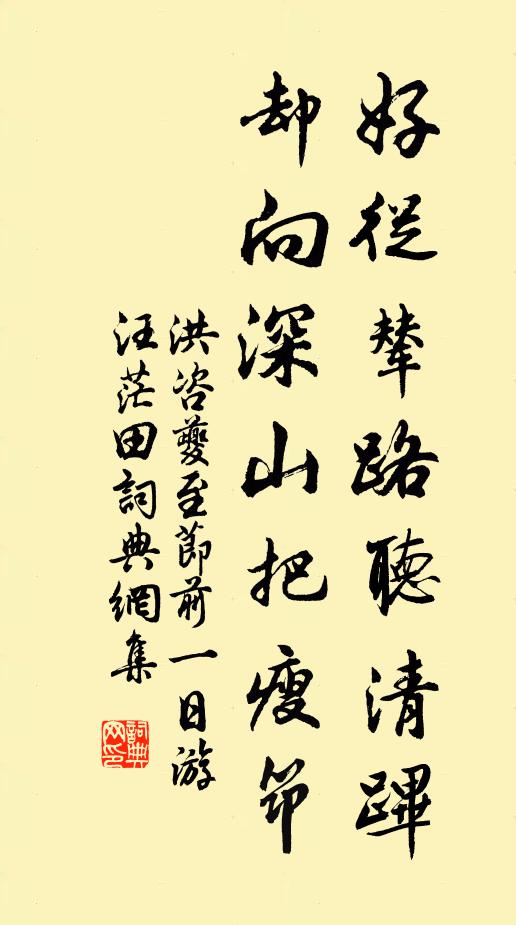 好從輦路聽清蹕
却向深山把瘦笻
洪咨夔至節前一日游
汪茫田詞典網集
詞典網印